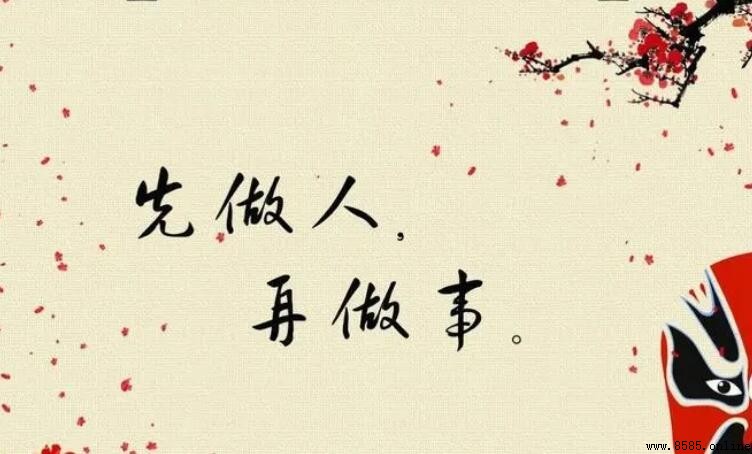 先做人，
再做事。
www.8585.online